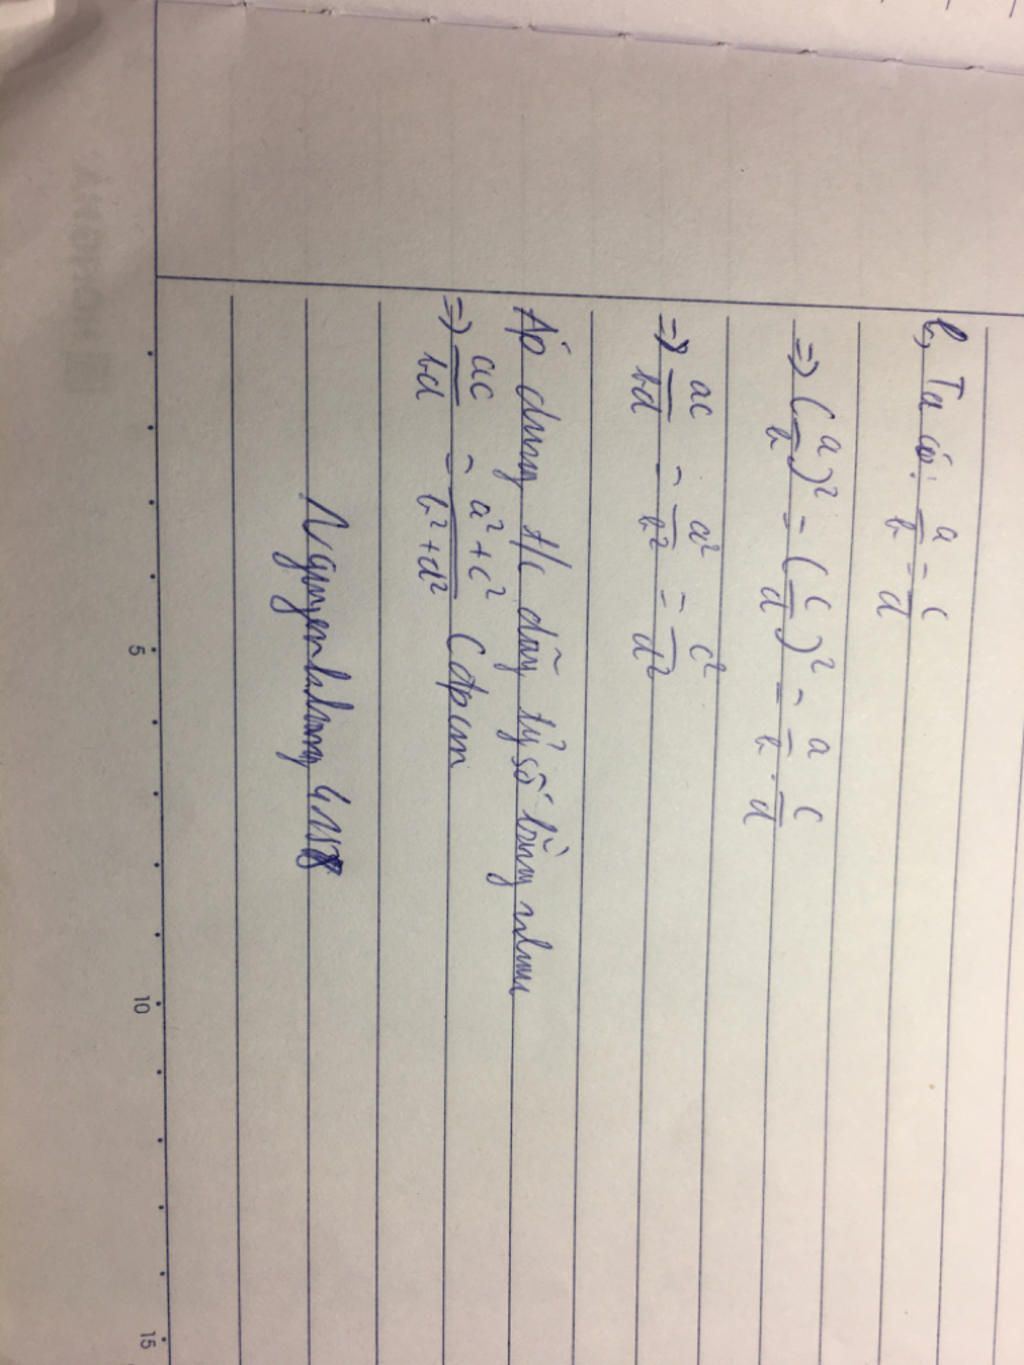 b, Ta có: a/b = c/d
=> (a/b)² = (c/d)² = a/b . c/d
=> ac/bd = a²/b² = c²/d²
Áp dụng t/c dãy tỷ số bằng nhau
=> ac/bd = a²+c²/b²+d² (đpcm
5 10 15